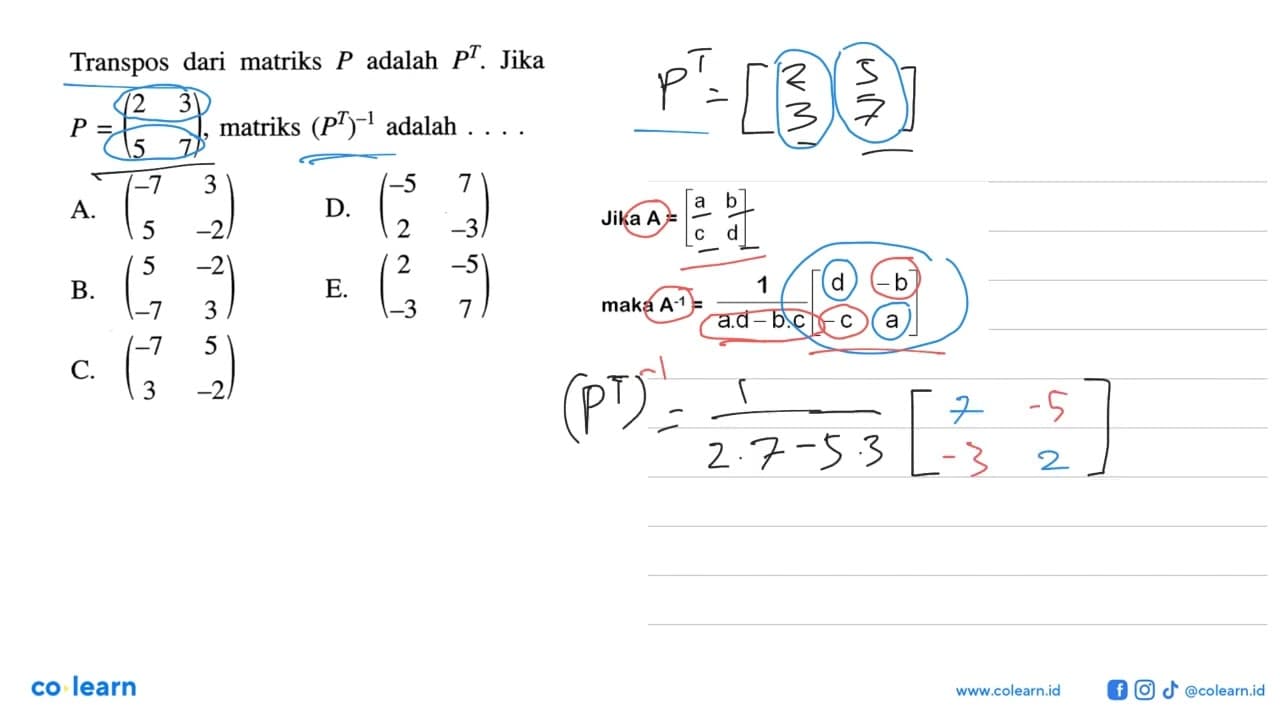 Transpos dari matriks P adalah Pᵀ. Jika
P = (2 3
5 7), matriks (Pᵀ)⁻¹ adalah . . . .
A. (–7 3
5 –2)
B. (5 –2
–7 3)
C. (–7 5
3 –2)
D. (–5 7
2 –3)
E. (2 –5
–3 7)
Pᵀ = [2 5
3 7]
Jika A = [a b
c d]
maka A⁻¹ = 1 / a.d – b.c [d – b
– c a]
(Pᵀ)⁻¹ = 1 / 2.7 – 5.3 [7 -5
-3 2]
co learn
www.colearn.id
@colearn.id